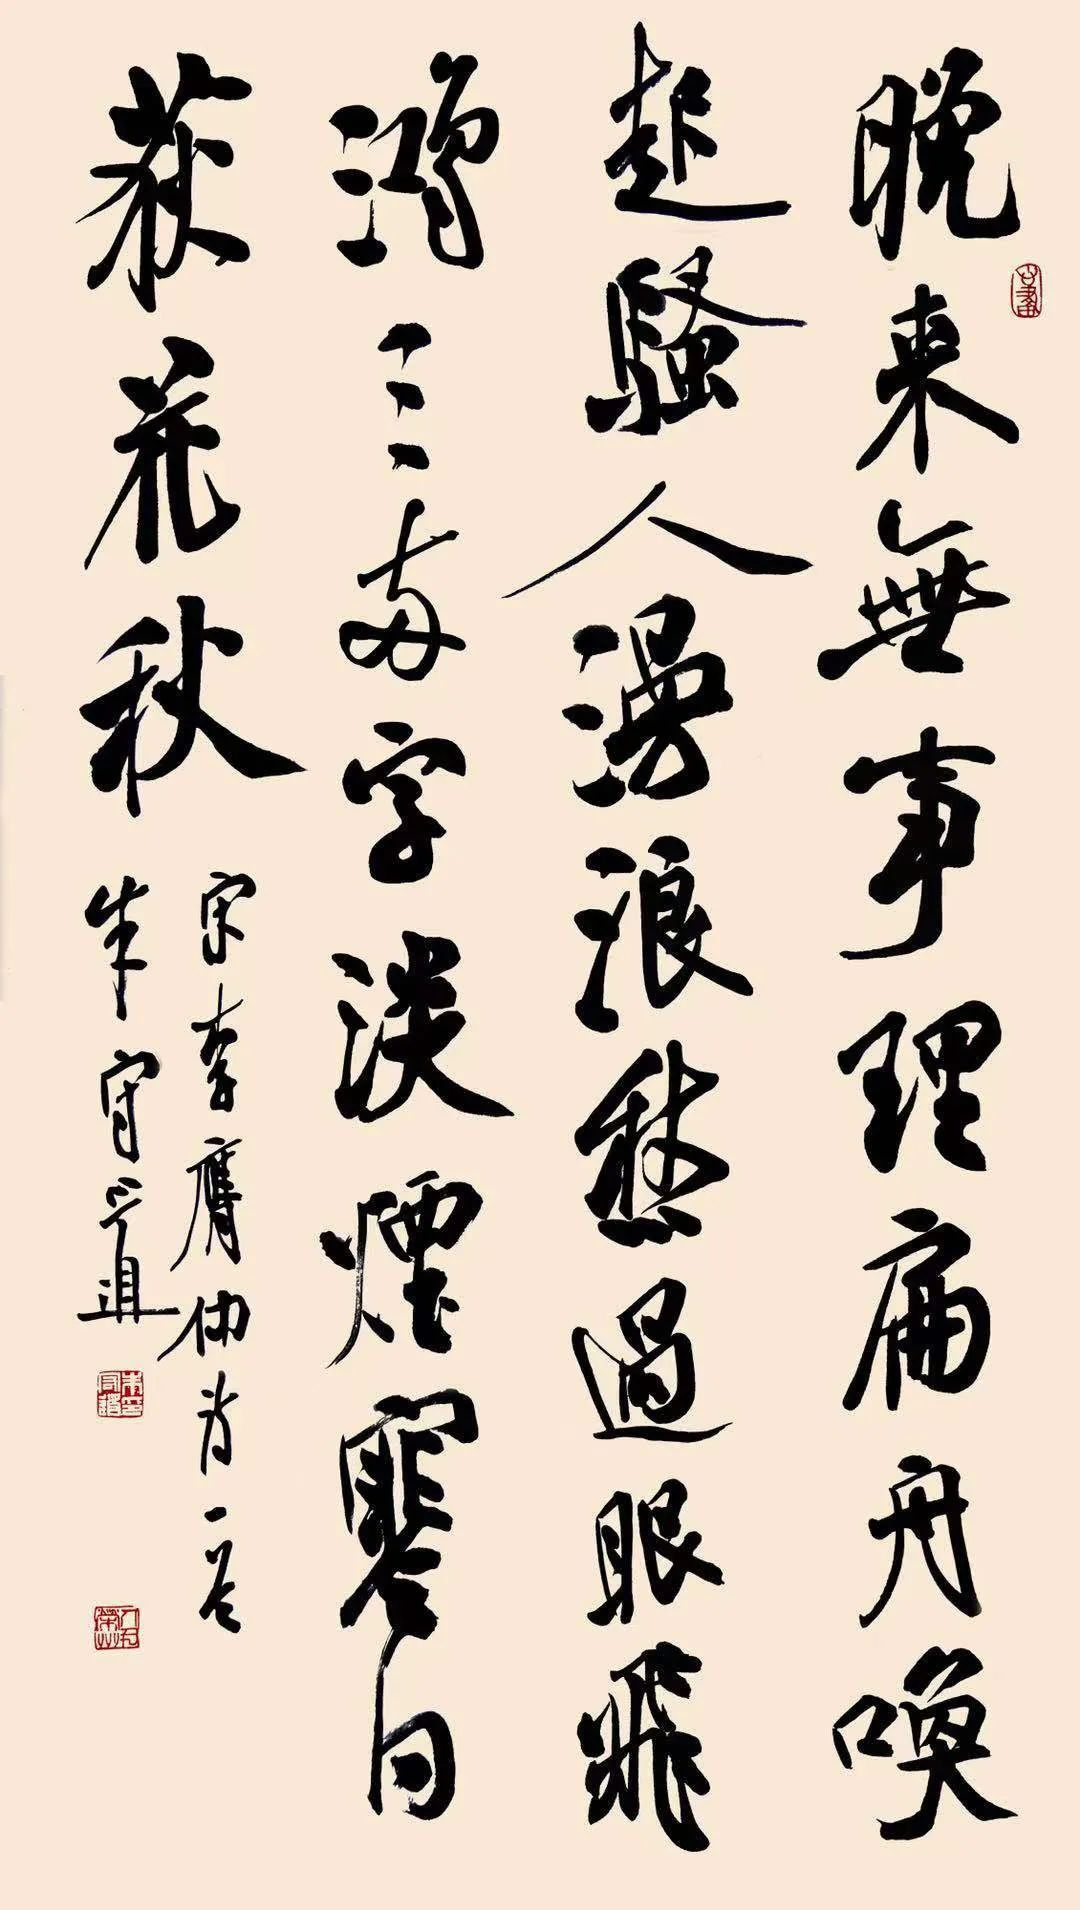 晚來無事理扁舟喚
起騷人漫浪愁過眼飛
鴻三两字淡煙寒日
荻花秋
宋李膺仲詩一首
朱守道